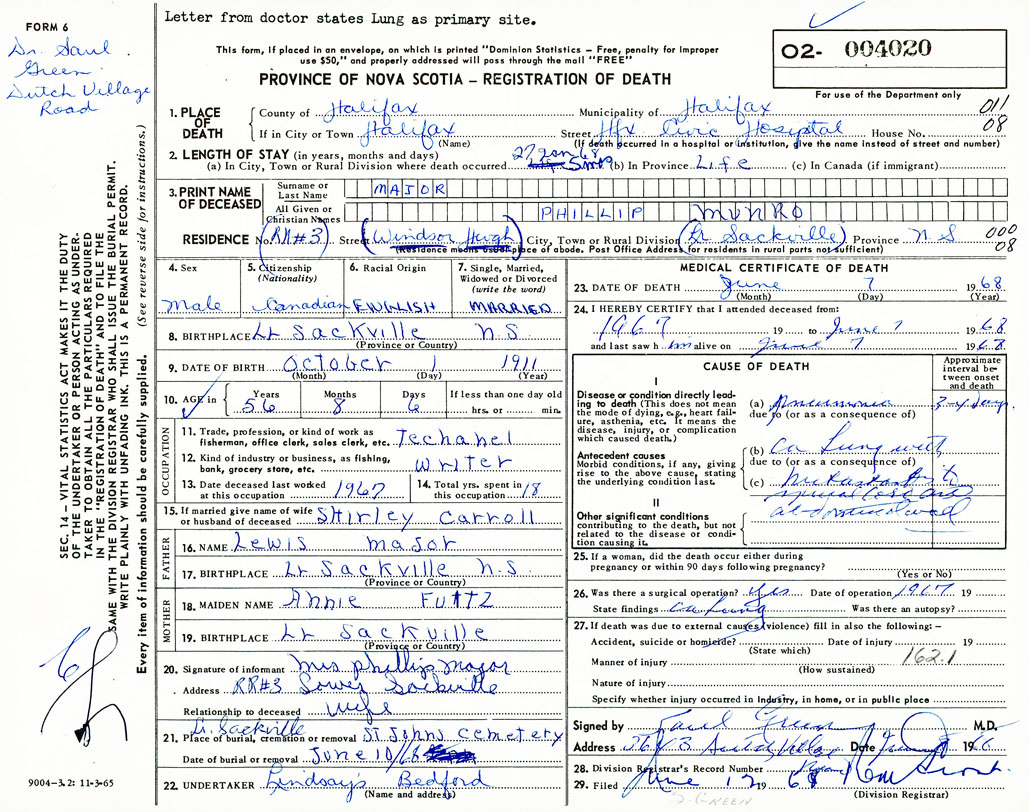 Letter from doctor states Lung as primary site.
FORM 6
Dr. Saul
Green
Dutch Village
Road
This form, if placed in an envelope, on which is printed "Dominion Statistics – Free, penalty for improper
use $50," and properly addressed will pass through the mail "FREE"
PROVINCE OF NOVA SCOTIA – REGISTRATION OF DEATH
02- 004020
For use of the Department only
SEC. 14 – VITAL STATISTICS ACT MAKES IT THE DUTY
OF THE UNDERTAKER OR PERSON ACTING AS UNDER-
TAKER TO OBTAIN ALL THE PARTICULARS REQUIRED
IN THE "REGISTRATION OF DEATH" AND TO FILE THE
SAME WITH THE DIVISION REGISTRAR WHO SHALL ISSUE THE BURIAL PERMIT.
WRITE PLAINLY WITH UNFADING INK. THIS IS A PERMANENT RECORD.
Every item of information should be carefully supplied. (See reverse side for instructions.)
1. PLACE OF DEATH County of Halifax Municipality of Halifax 011
If in City or Town Halifax Street Hfx Civic Hospital House No. 08
(Name) (If death occurred in a hospital or institution, give the name instead of street and number)
2. LENGTH OF STAY (in years, months and days)
(a) In City, Town or Rural Division where death occurred 5 mos (b) In Province Life (c) In Canada (if immigrant)
3. PRINT NAME OF DECEASED Surname or Last Name MAJOR
All Given or Christian Names PHILLIP MUNRO
RESIDENCE No. RR#3 Street Windsor Heigh City, Town or Rural Division Lr Sackville Province N S 000
(Residence means usual place of abode. Post Office Address for residents in rural parts not sufficient) 08
4. Sex 5. Citizenship (Nationality) 6. Racial Origin 7. Single, Married, Widowed or Divorced (write the word)
Male Canadian ENGLISH MARRIED
8. BIRTHPLACE Lr Sackville N S
(Province or Country)
9. DATE OF BIRTH October 1 1911
(Month) (Day) (Year)
10. AGE in Years Months Days If less than one day old
56 8 6 hrs. or min.
OCCUPATION
11. Trade, profession, or kind of work as
fisherman, office clerk, sales clerk, etc.
12. Kind of industry or business, as fishing,
bank, grocery store, etc. writer
13. Date deceased last worked at this occupation 1967 14. Total yrs. spent in this occupation 18
15. If married give name of wife
or husband of deceased Shirley Carroll
FATHER
16. NAME Lewis Major
17. BIRTHPLACE Lr Sackville N.S.
(Province or Country)
MOTHER
18. MAIDEN NAME Annie
19. BIRTHPLACE Lr Sackville
(Province or Country)
20. Signature of informant Mrs Phillip Major
Address RR#3 Lower Sackville
Relationship to deceased wife
Lr. Sackville
21. Place of burial, cremation or removal St. Johns Cemetery
Date of burial or removal June 10/68
22. UNDERTAKER Lindsay's Bedford
(Name and address)
9004-3.2: 11-3-65
MEDICAL CERTIFICATE OF DEATH
23. DATE OF DEATH June 7 1968
(Month) (Day) (Year)
24. I HEREBY CERTIFY that I attended deceased from:
1967 19 to June 7 1968
and last saw him alive on June 7 1968.
CAUSE OF DEATH
Approximate interval between onset and death
I
Disease or condition directly lead-
ing to death (This does not mean
the mode of dying, e.g., heart fail-
ure, asthenia, etc. It means the
disease, injury, or complication
which caused death.)
(a) Pneumonia 3-4 days
due to (or as a consequence of)
Antecedent causes
Morbid conditions, if any, giving
rise to the above cause, stating
the underlying condition last.
(b) Ca Lung with
due to (or as a consequence of)
(c) metastasis to
spinal cord and
abdominal wall
II
Other significant conditions
contributing to the death, but not
related to the disease or condi-
tion causing it.
25. If a woman, did the death occur either during
pregnancy or within 90 days following pregnancy?
(Yes or No)
26. Was there a surgical operation? Yes Date of operation 1967 19
State findings Ca Lung Was there an autopsy?
27. If death was due to external causes (violence) fill in also the following: –
Accident, suicide or homicide? Date of injury 19
(State which)
Manner of injury 162.1
(How sustained)
Nature of injury
Specify whether injury occurred in industry, in home, or in public place
Signed by Saul Green M.D.
Address Dutch Village Date 196
28. Division Registrar's Record Number
29. Filed June 12 1968
(Division Registrar)
S. GREEN